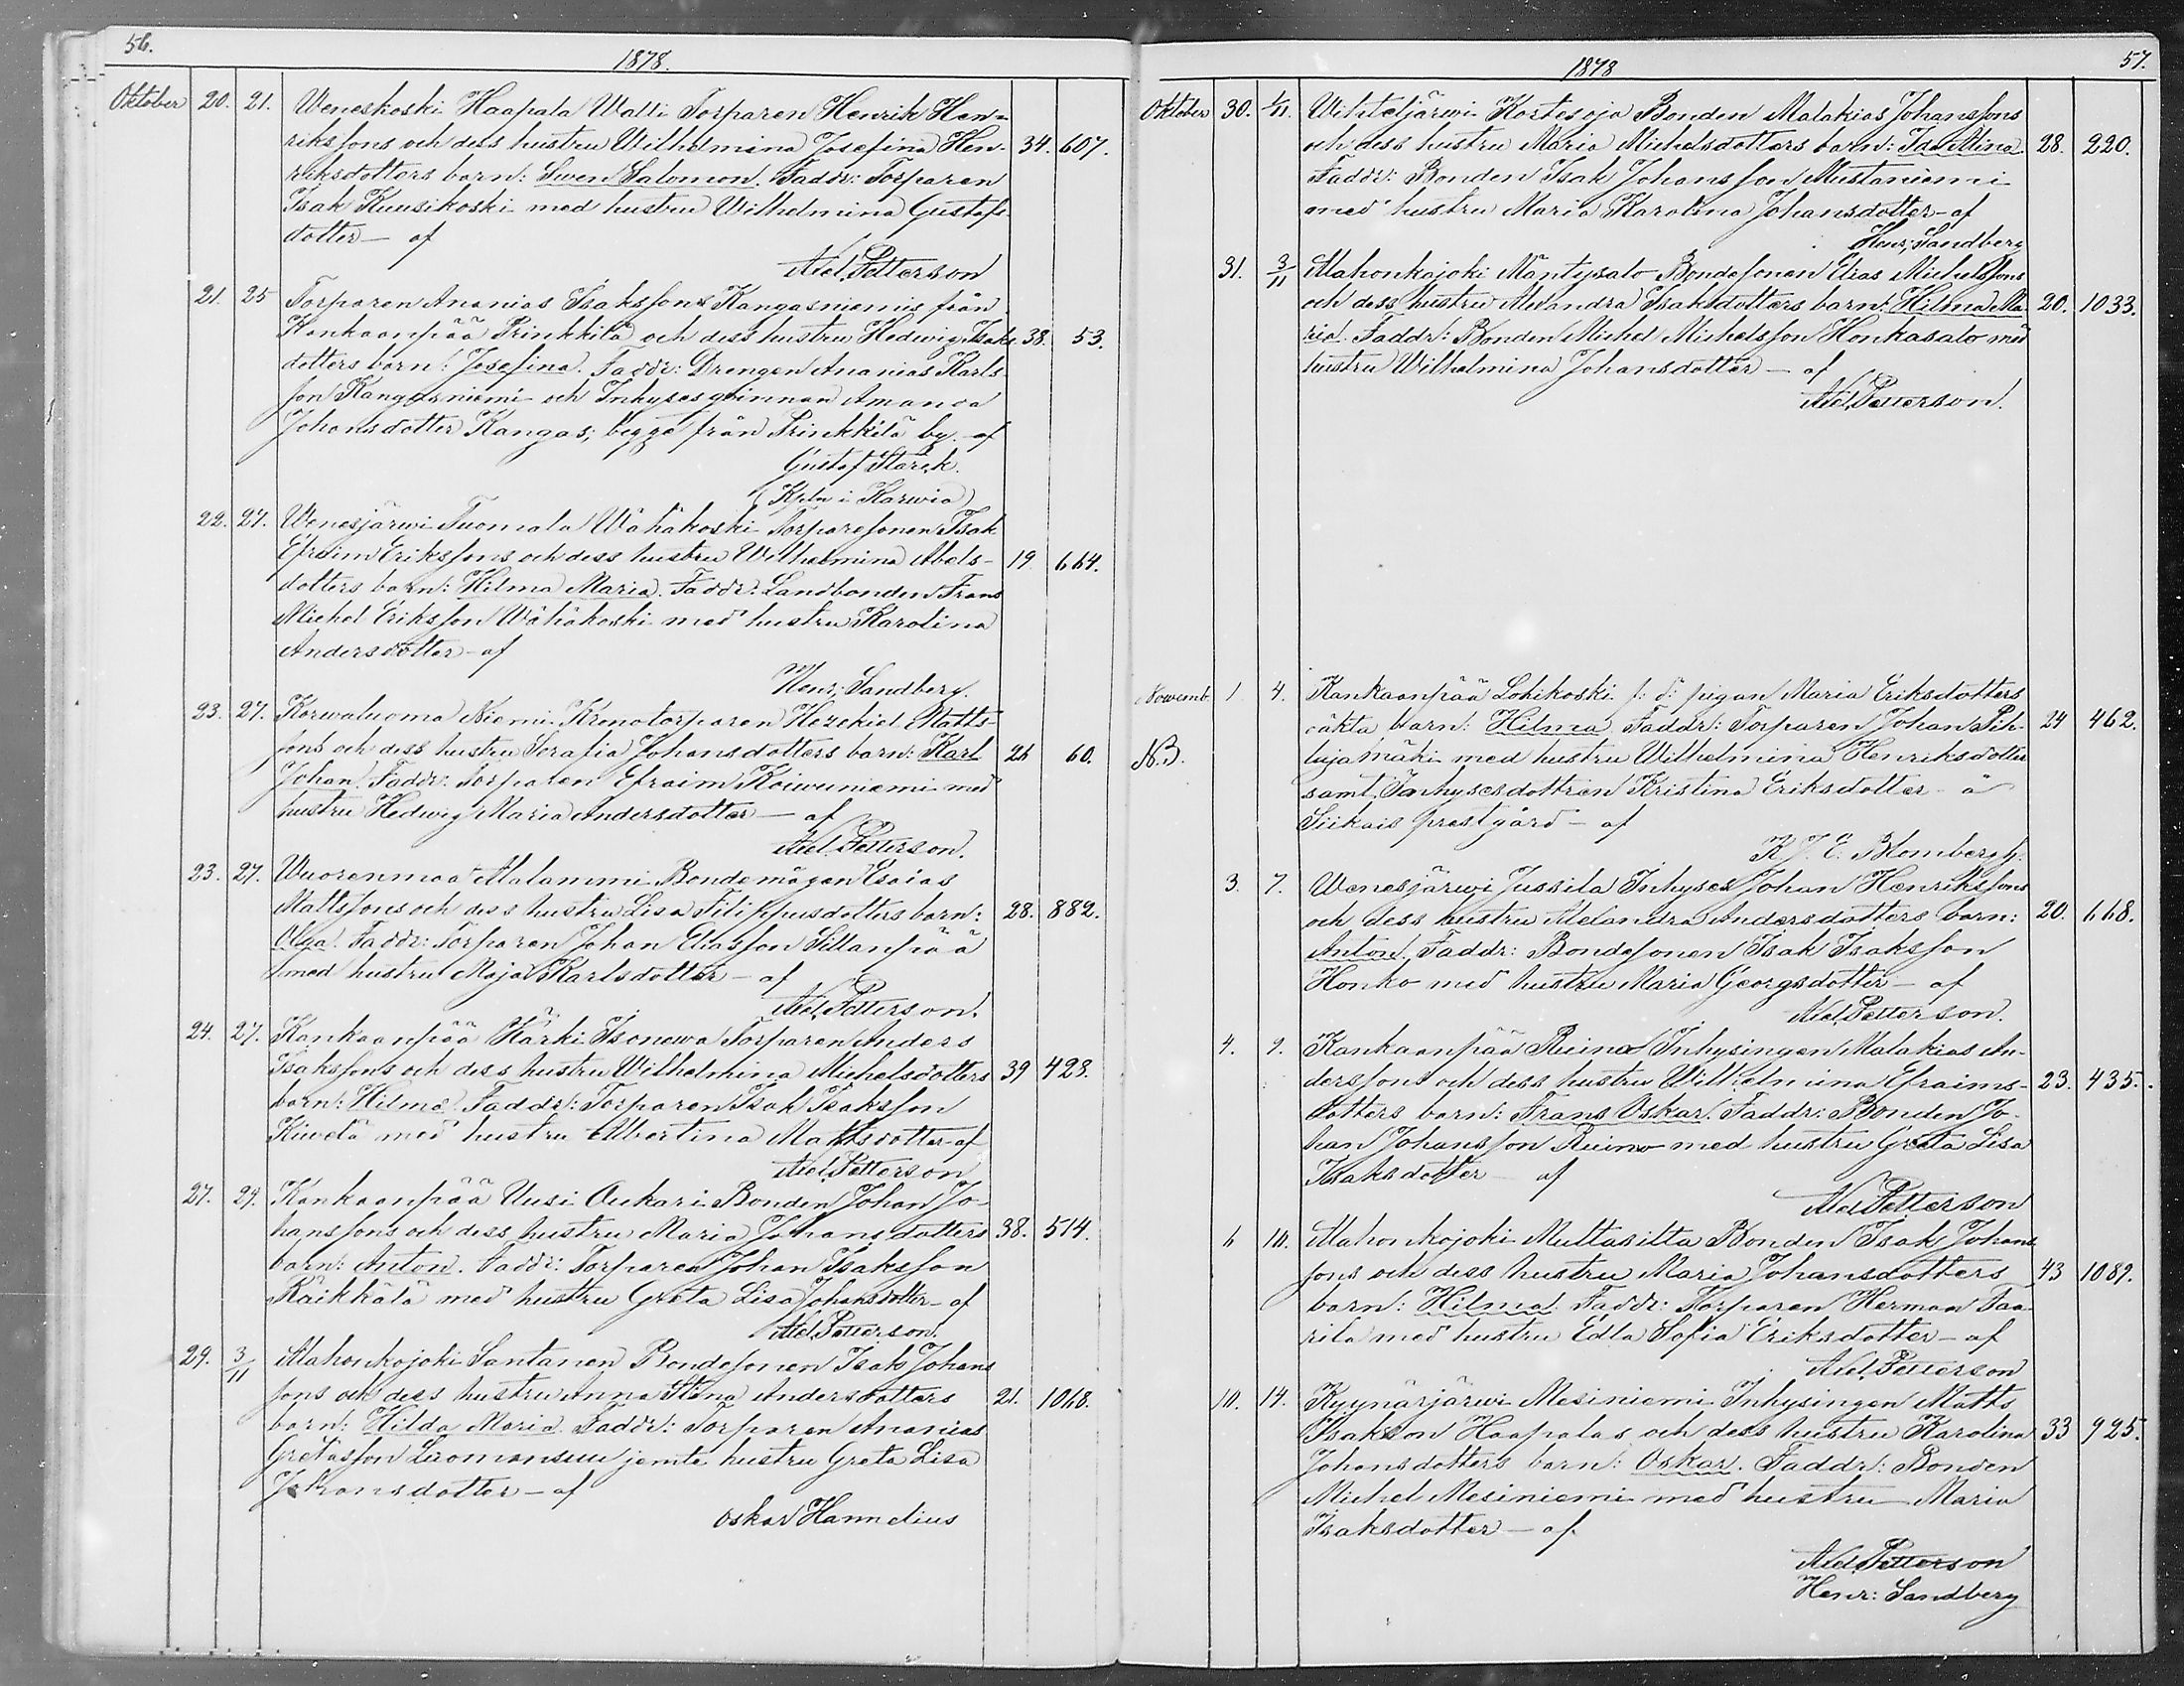 56.
1878.
Oktober 20. 21. Weneskoski Haapala Walli Torparen Henrik Hen-
riksfons och dess hustru Wilhelmina Josefina Hen- 34. 607.
riksdotters barn: Swen Salomon. Faddr: Torparen
Isak Kuusikoski med hustru Wilhelmina Gustafs
dotter — af
Axel Petterson
21. 25 Torparen Ananias Isaksfons Kangasniemis från
Kankaanpää Prinkkilä och dess hustru Hedwig Isaks 38. 53.
dotters barn: Josefina. Faddr: Drengen Ananias Karls
fon Kangasniemi och Inhysesqvinnan Amanda
Johansdotter Kangas; begge från Prinkkilä by. af
Gustaf Starck.
(Kpln i Karwia)
22. 27. Wenesjärwi Tuomala Wähäkoski Torparesonen Isak
Efraim Eriksfons och dess hustru Wilhelmina Abels- 19 664.
dotters barn: Hilma Maria. Faddr: Landbonden Frans
Michel Eriksfon Wähäkoski med hustru Karolina
Andersdotter - af
Henr: Sandberg.
23. 27. Karwaluoma Niemi Kronotorparen Hezekiel Matts-
fons och dess hustru Serafia Johansdotters barn: Karl 26 60.
Johan. Faddr: Torparen Efraim Koiwuniemi med
hustru Hedwig Maria Andersdotter — af
Axel Petterson.
23. 27. Wuorenmaa Alalammi Bondemågen Esaias
Mattsfons och dess hustru Lisa Filippusdotters barn: 28. 882.
Olga. Faddr: Torparen Johan Eliasfon Sillanpää
med hustru Maja Karlsdotter — af
Axel Petterson.
24. 27. Kankaanpää Kärki Isonewa Torparen Anders
Isaksfons och dess hustru Wilhelmina Michelsdotters 39 428.
barn: Hilma. Faddr: Torparen Isak Isaksfon
Kiwelä med hustru Albertina Mattsdotter - af
Axel Petterson
27. 29. Kankaanpää Uusi Aukari Bonden Johan Jo-
hansfons och dess hustru Maria Johansdotters 38. 514.
barn: Anton. Faddr: Torparen Johan Isaksfon
Räikkälä med hustru Greta Lisa Johansdotter - af
Axel Petterson.
29. 3/11 Alahonkajoki Santanen Bondesonen Isak Johans
fons och dess hustru Anna Stina Andersdotters 21. 1068.
barn: Hilda Maria. Faddr: Torparen Ananias
Gretasfon Luomansuu jemte hustru Greta Lisa
Johansdotter - af
Oskar Hannelius
57.
1878
Oktober 30. 1/11. Wihteljärwi Kortesoja Bonden Malakias Johansfons
och dess hustru Maria Michelsdotters barn: Ida Mina. 28. 220.
Faddr: Bonden Isak Johansfon Mustaniemi
med hustru Maria Karolina Johansdotter - af
Henr: Sandberg
31. 3/11 Alahonkajoki Mäntysalo Bondesonen Elias Michelsfons
och dess hustru Alexandra Isaksdotters barn: Hilma Ma- 20. 1033.
ria. Faddr: Bonden Michel Michelsfon Honkasalo med
hustru Wilhelmina Johansdotter — af
Axel Petterson.
Nowemb. 1 4. Kankaanpää Lohikoski f: d: pigan Maria Eriksdotters
oäkta barn: Hilma. Faddr: Torparen Johan Pih- 24 462.
N.B. lajamäki med hustru Wilhelmina Henriksdotter
samt Inhysesdottren Kristina Eriksdotter - å
Siikais prestgård - af
K. J. E. Blombergh.
3. 7. Wenesjärwi Jussila Inhyses Johan Henriksfons
och dess hustru Alexandra Andersdotters barn: 20. 668.
Anton. Faddr: Bondesonen Isak Isaksfon
Honko med hustru Maria Georgsdotter — af
Axel Petterson.
4. 9. Kankaanpää Ruino Inhysingen Malakias An-
dersfons och dess hustru Wilhelmina Efraims- 23. 435.
dotters barn: Frans Oskar. Faddr: Bonden Jo-
han Johansfon Ruino med hustru Greta Lisa
Isaksdotter — af
Axel Petterson
6 10. Alahonkojoki Multasilta Bonden Isak Johans
fons och dess hustru Maria Johansdotters 43 1089.
barn: Hilma. Faddr: Torparen Herman Saa-
rila med hustru Edla Sofia Eriksdotter — af
Axel Petterson
10. 14. Kyynärjärwi Mesiniemi Inhysingen Matts
Isakson Haapalas och dess hustru Karolina 33 925.
Johansdotters barn: Oskar. Faddr: Bonden
Michel Mesiniemi med hustru Maria
Isaksdotter — af
Axel Petterson
Henr: Sandberg